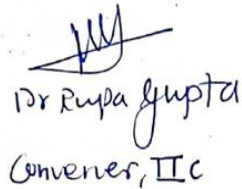 Dr Rupa Gupta
Convener, IIC